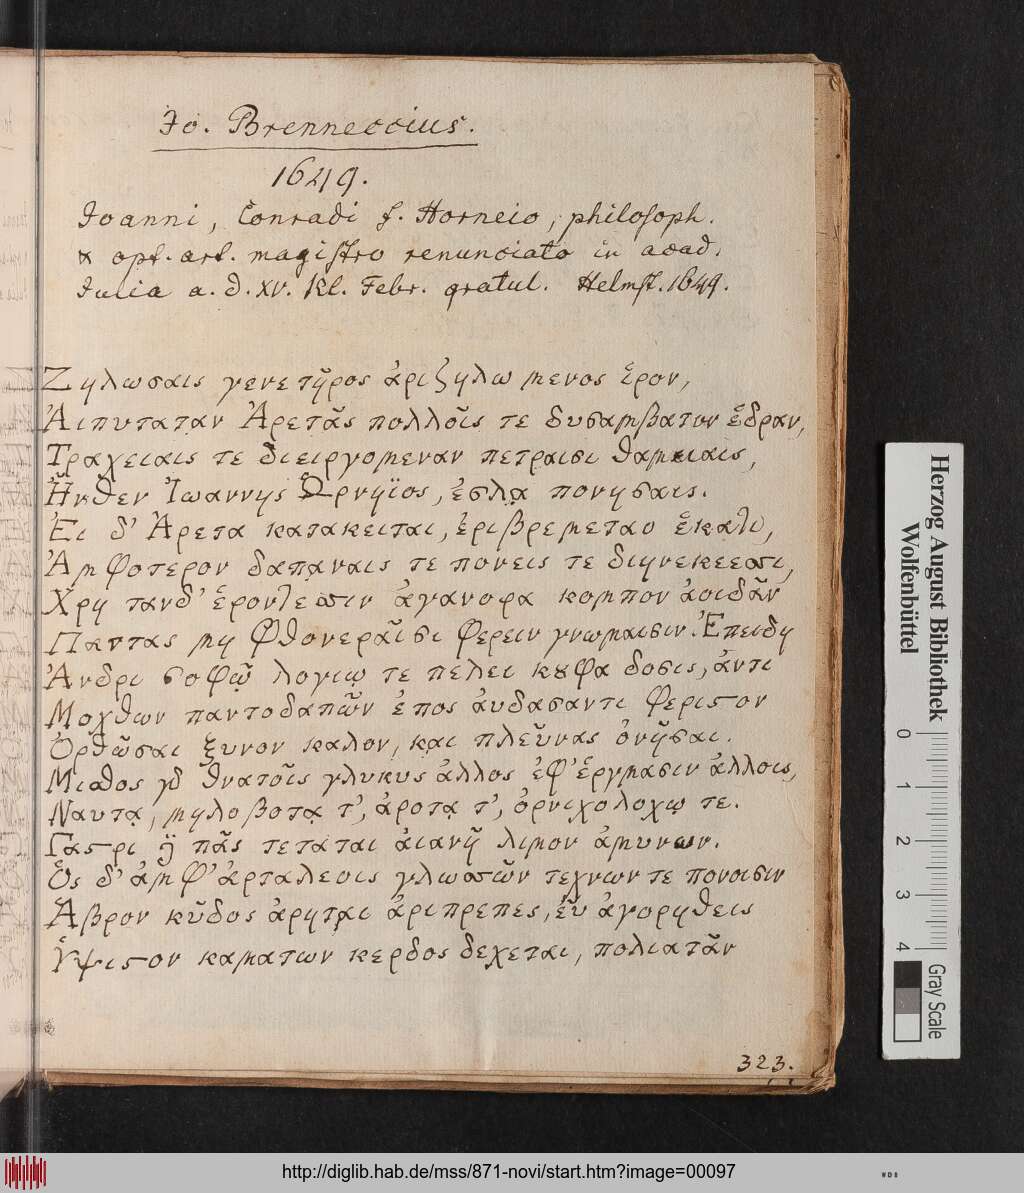 Io. Brenneccius.
1649.
Joanni, Conradi f. Horneio, philosoph.
& opt. art. magistro renunciato in acad.
Iulia a. d. XV. Kl. Febr. gratul. Helmst. 1649.
Ζηλωσαις γενετῆρος ἀριζηλωμενος ἔρον,
Ἀιπυταταν Ἀρετᾶς πολλοῖς τε δυσαμβατον ἕδραν,
Τραχειαις τε διειργομεναν πετραισι θαμειαις,
Ἦνθεν Ἰωαννης Ὡρνηϊος, ἐσλᾳ πονησαις.
Ἐι δ' Ἀρετα κατακειται, ἐριβρεμεταο ἕκατι,
Ἀμφοτερον δαπαναις τε πονεις τε διηνεκεεσσι,
Χρη τανδ' ἑροντεσσιν ἀγανορα κομπον ἀοιδᾶν
Παντας μη φθονεραῖσι φερειν γνωμαισιν. Ἐπειδη
Ἀνδρι σοφῷ λογιῳ τε πελει κȣφα δοσις, ἀντι
Μοχθων παντοδαπῶν ἐπος ἀυδασαντι φεριστον
Ὀρθῶσαι ξυνον καλον, και πλεῦνας ὀνῆσαι.
Μισθος γδ θνατοῖς γλυκυς ἀλλος ἐφ' ἔργμασιν ἀλλοις,
Ναυτᾳ, μηλοβοτᾳ τ', ἀροτᾳ τ', ὀρνιχολοχῳ τε.
Γαστρι πᾶς τεταται ἀιανῆ λιμον ἀμυνων.
Ὃς δ' ἀμφ' ἀρταλεοις γλωσσῶν τεχνων τε πονοισιν
Ἅβρον κῦδος ἀρηται ἀριπρεπες, ἐῦ ἀγορηθεις
Ὕψιστον καματων κερδος δεχεται, πολιατᾶν
323.
Herzog August Bibliothek
Wolfenbüttel
0 1 2 3 4
Gray Scale
http://diglib.hab.de/mss/871-novi/start.htm?image=00097